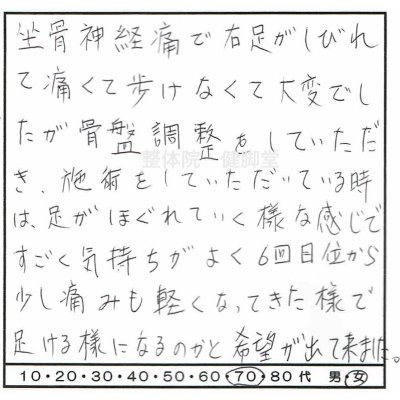 坐骨神経痛で右足がしびれ
て痛くて歩けなくて大変でし
たが骨盤調整をしていただ
き、施術をしていただいている時
は、足がほぐれていく様な感じで
すごく気持ちがよく6回目位から
少し痛みも軽くなってきた様で
足ける様になるのかと希望が出て来ました。
整体院 健御堂
10・20・30・40・50・60・70・80代 男・女